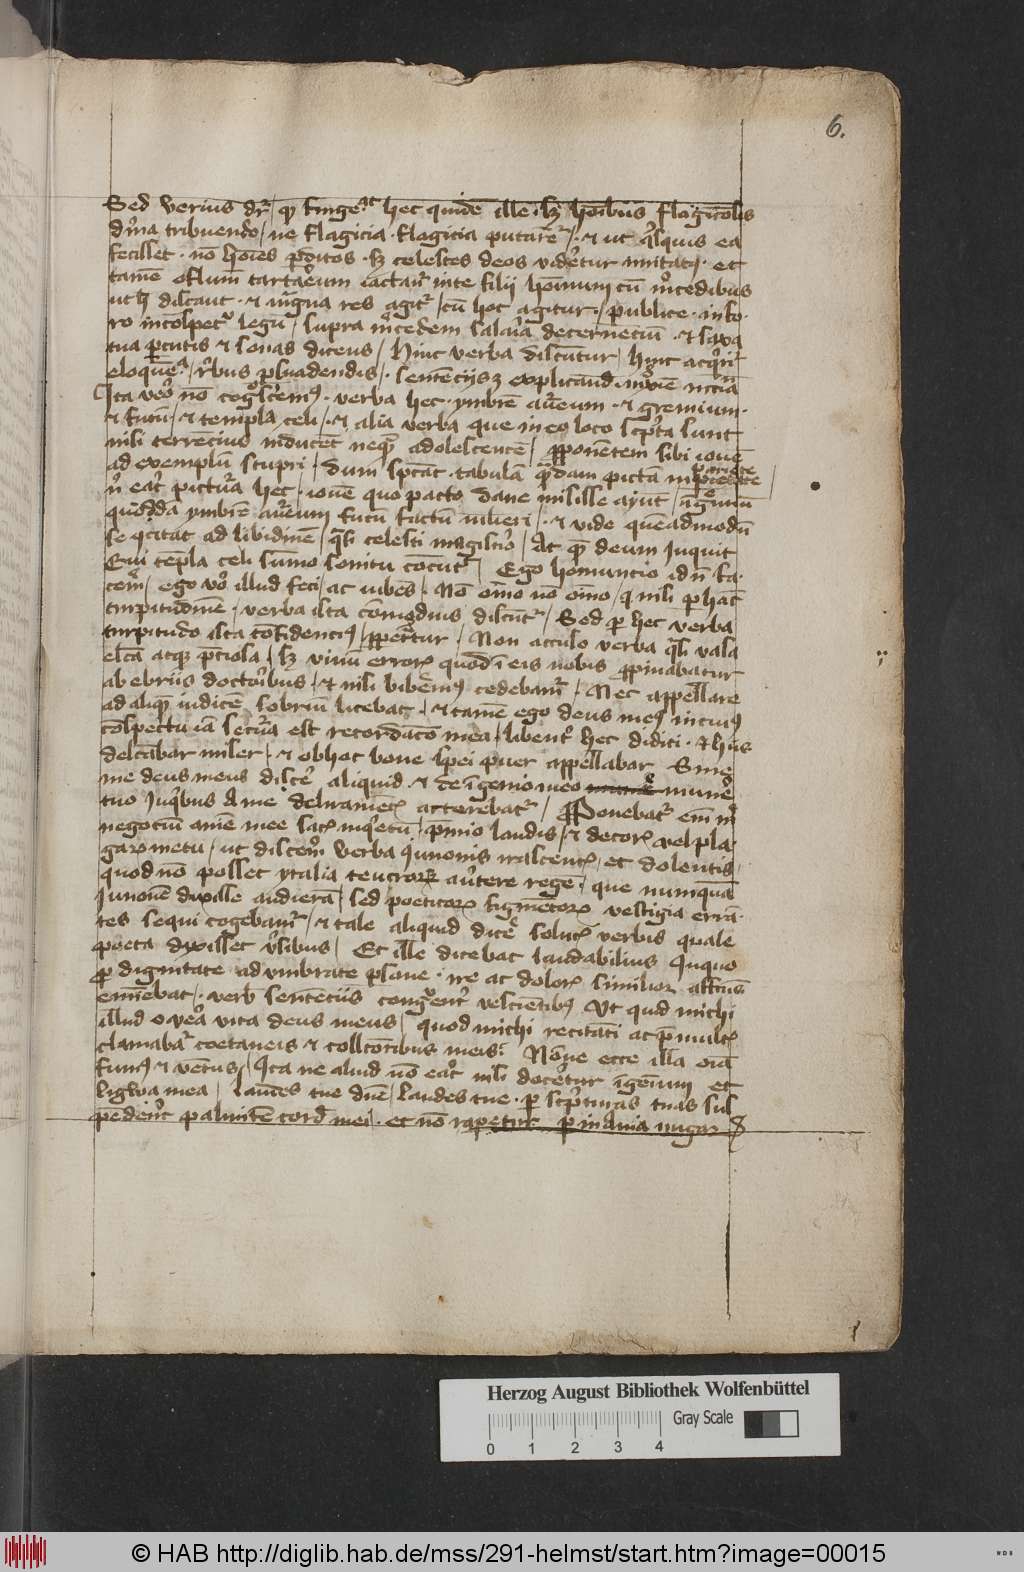 6.
Sed verius dr̄ / qꝫ fingebat hec quidē ille · sꝫ hoībus flagiciosis
dīuina tribuendo / ne flagicia flagicia putarēr / · et ut qͥsquis ea
fecisset · nō hoīes ꝑditos · sꝫ celestes deos videretur imitatꝫ · et
tamē o flumē tartareum iactant̄ in te filij hominum cū mercedibus
ut hec discant · et magna res agitr̄ / cū hoc agitur · / publice · in fo·
ro in cōspectu legū / supra mercedem salaria decernētium · et saxa
tua ꝑcutis et sonas dicens / hinc verba discuntur / hinc acqrit̄
eloquēcia / rebus ꝑsuadendis / · sentēcijsqꝫ explicand · necessaria
Ita vero nō cogsceremꝰ · verba hec · ymbrē aureum · et gremium ·
et fucū · et templa celi / · et alia verba que in eo loco scpta sunt
nisi terrenciuꝫ induceret nequā adolescentē / ꝓponentem sibi iouē
ad exemplū stupri / · dum spectat · tabulā quādam pictā in pariete
ubi erat pictura hec · iouē quo pacto danae misisse aiunt / in gremiū
quōdā ymbrē aureum fucū factū mulieri / · et vide quēadmodū
se cōcitat ad libidinē / quasi celesti magistro / At quē deum inquit
Qui tēpla celi sūmo sonitu cōcutit / Ego homuncio id nō fa·
cerem / ego vero illud feci / ac lubēs · / Nō oīno nō oīno / qꝫ nisi ꝑ hāc
turpitudinē · verba ista cōmodius discūtr̄ / Sed ꝑ hec verba
turpitudo ista cōfidencius / ꝑpetratur / Non accuso verba quasi vasa
electa atqꝫ preciosa / sꝫ vinū erroris quod ī eis nobis ꝓpinabatur
ab ebriis doctoribus · et nisi biberemꝰ cedebamr̄ · Nec appellare
ad aliquē iudicē sobriū licebat · / et tamē ego deus meꝰ in cuiꝰ
cōspectu iā secura est recordacō mea / libenter hec didici · et hijs
delectabar miser · et ob hoc bone spei puer appellabar Sine
me deus meus dicere aliquid · et de īgenio meo munere
tuo in quibus a me deliramētis atterebatr̄ / Proponebatr̄ enī mͥ
negocium anīe mee satis inquietū / premio laudis / et decoris vel pla·
garum metu / ut dicerem verba iunonis irascentis / et dolentis /
quod nō posset ytalia teucrorꝫ auertere regē · que nunquā
Iunonē dixisse audierā / sed poeticorꝫ figmētorꝫ vestigia errā·
tes sequi cogebamr̄ / et tale aliquid dicere solutis verbis quale
poeta dixisset versibus / Et ille dicebat laudabilius In quo
ꝓ dignitate adumbrate ꝑsone · ire ac doloris similior affectus
eminebat · verbis sentencijs congruenter vestiētibus Ut quid michi
illud o vera vita deus meus / quod michi recitanti acclamabatr̄ pre multis
coetaneis et collectoribus meis : Nōne ecce illa oīa
fumꝰ et ventus / Ita ne aliud nō erat nisi doceretur īgenium et
lingwa mea / laudes tue dnē / laudes tue · ꝑ scpturas tuas sus
penderēt palmitē cordis mei / · et nō rapetur ꝑ inania nugarꝫ
Herzog August Bibliothek Wolfenbüttel
Gray Scale
0 1 2 3 4
© HAB http://diglib.hab.de/mss/291-helmst/start.htm?image=00015